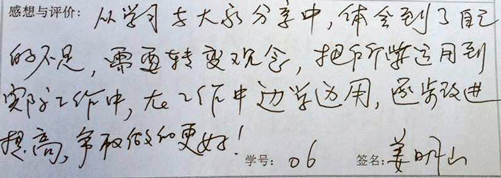 感想与评价：从学习与大家分享中，体会到了自己
的不足，需要转变观念，把所学运用到
实际工作中，在工作中边学边用，逐步改进
提高，争取做的更好！
学号：06 签名：姜明山